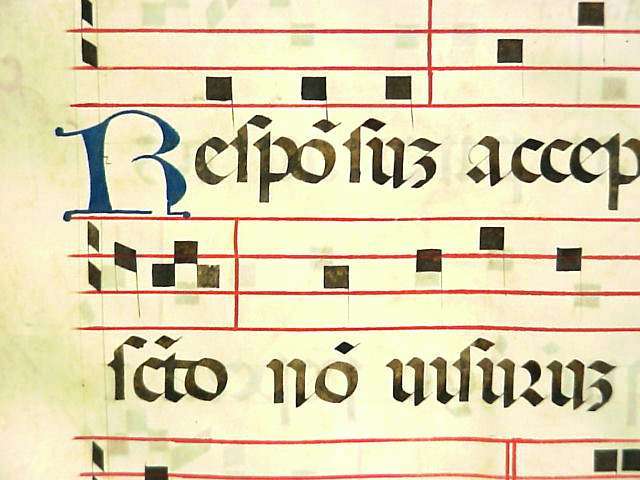 Reſpõſuz accep
ſc̃to nõ uiſuruz